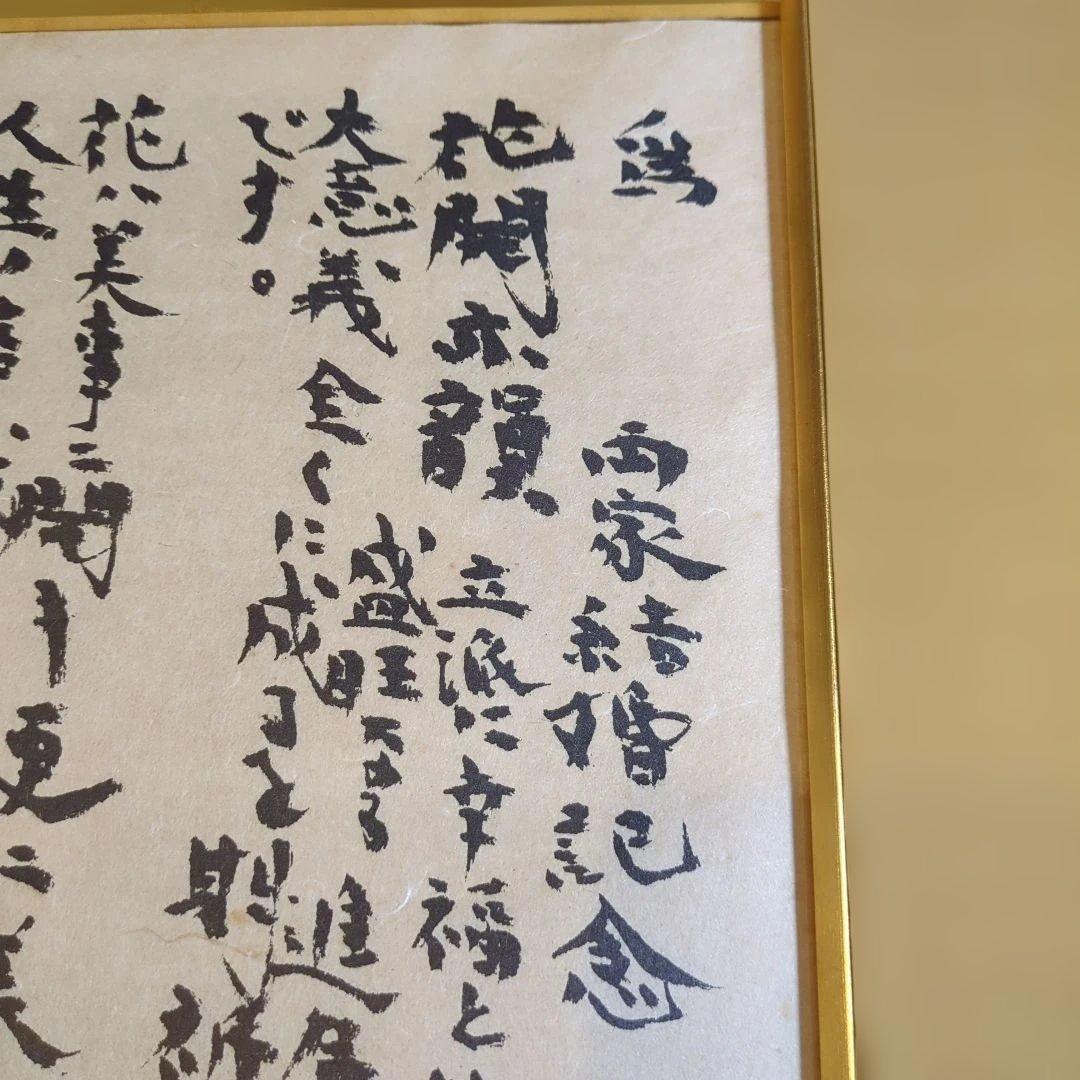 為 両家結婚記念
花開亦韻 立派に幸福と
盛旺なる進
大意義全くに成るを期祈
です。
花ハ美事ニ開キ更ニ美
人生ハ